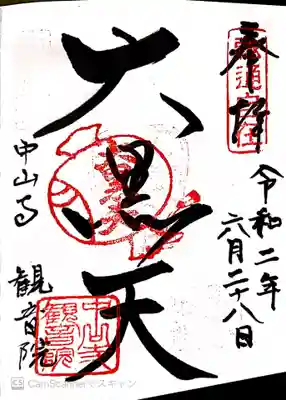 奉拝
令和二年
六月二十八日
大黒天
中山寺
観音院
中山寺
観音院
CS CamScannerでスキャン